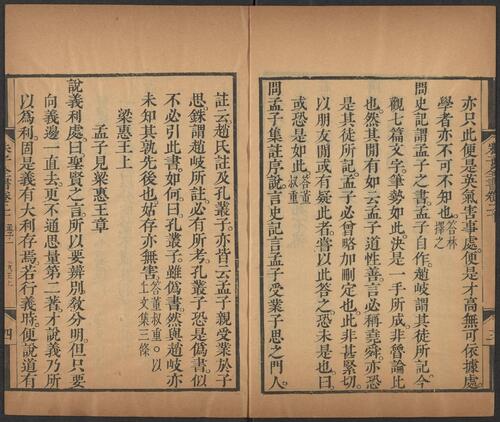 亦只此便是英氣害事處。便是才高無可依據處。
學者亦不可不知也。答林擇之
問史記謂孟子之書。孟子自作。趙岐謂其徒所記。今
觀七篇文字。筆勢如此。決是一手所成。非魯論比
也。然其間有如云孟子道性善。言必稱堯舜。亦恐
是其徒所記。孟子必曾略加刪定也。此非甚緊切。
以朋友間或有疑此者。嘗以此答之。恐未是也。曰。
或恐是如此。答董叔重
問孟子集註序說。言史記言孟子受業子思之門人。
註云趙氏註及孔叢子。亦皆云孟子親受業於子
思。銖謂趙岐所註。必有所考。孔叢子恐是偽書。似
不必引此書。如何。曰。孔叢子雖偽書。然與趙岐亦
未知其孰先後也。姑存亦無害。答董叔重。○以上文集三條
梁惠王上
孟子見梁惠王章
說義利處。曰。聖賢之言。所以要辨別教分明。但只要
向義邊一直去。更不通思量第二著。才說義乃所
以為利。固是義有大利存焉。若行義時。便說道有
四